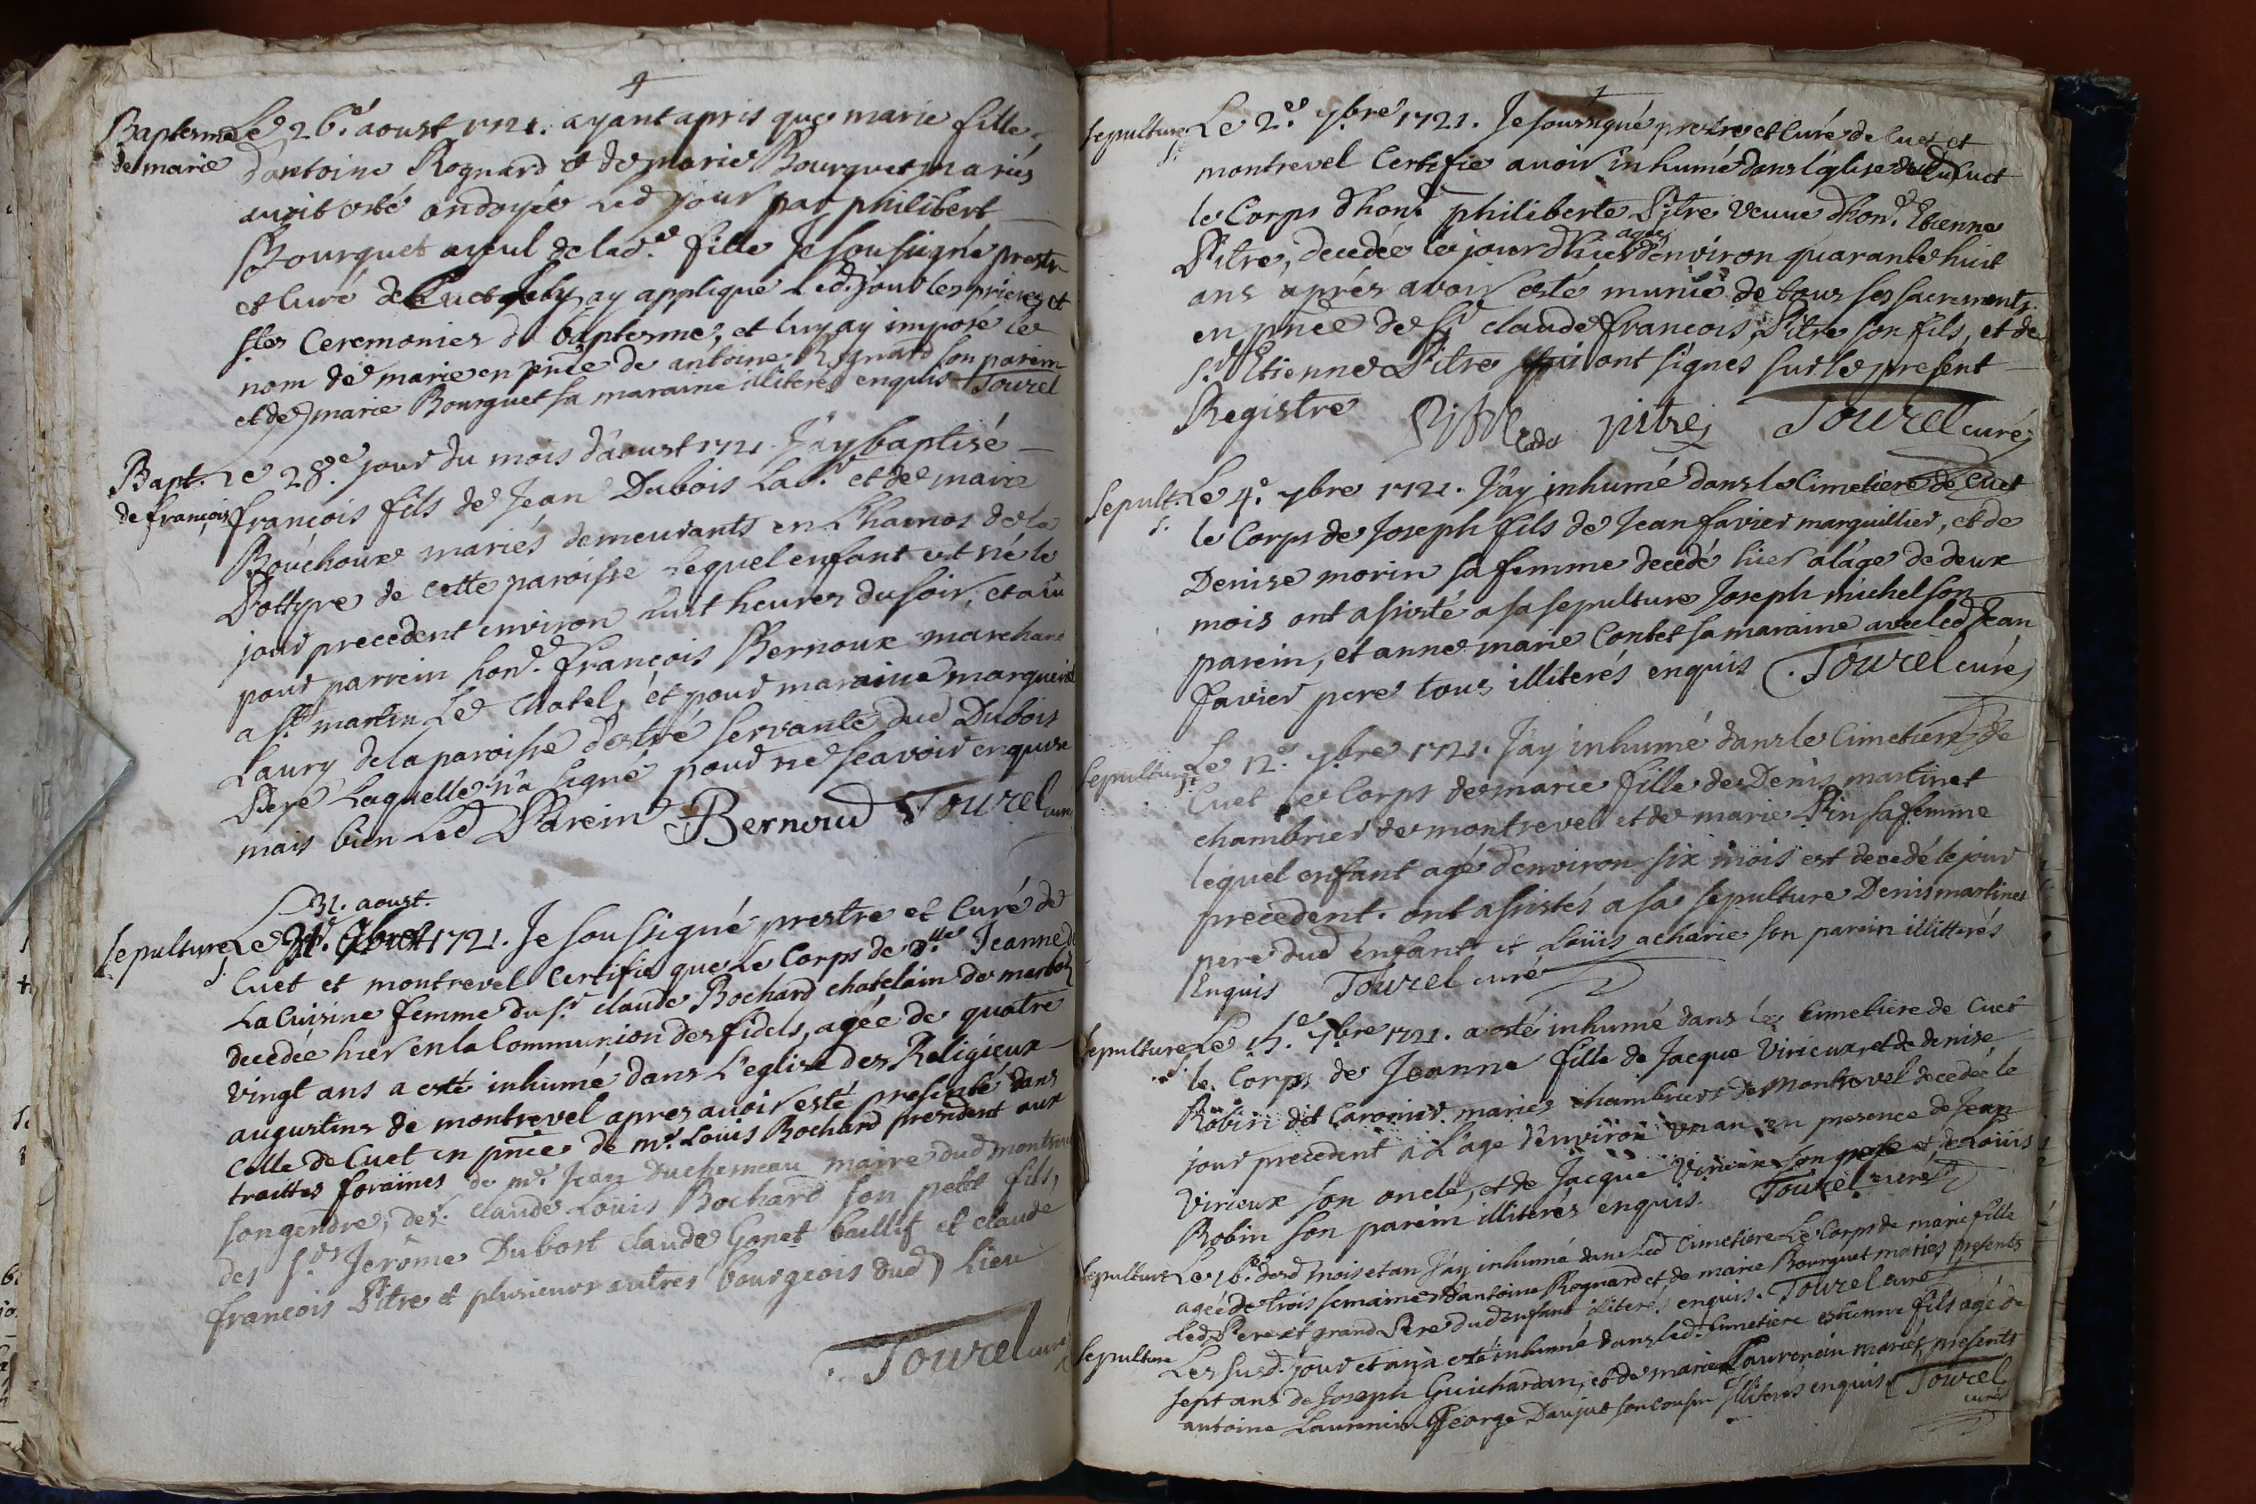 Baptesme
de marie
Le 26.e aoust 1721. ayant apris que marie fille
d'antoine Rognard & de marie Bourguet mariés
avoit esté ondoyée led jour par philibert
Bourguet ayeul de lad.e fille Je sousigné prestre
et curé de Cuet ay appliqué led. jour les prieres et
s.tes Ceremonies du baptesme, et luy ay imposé le
nom de marie en pñce de antoine Rognard son parein
et de marie Bourguet sa maraine illiterés enquis Tourel
Bapt.
de françois
Le 28.e jour du mois d'aoust 1721 J'ay baptisé
françois fils de Jean Dubois Lab.r et de marie
Bouchoux mariés demeurants en Lhamos de la
Pottyre de cette paroisse lequel enfant est né le
jour precedent environ huit heures du soir, et a eu
pour parrein hon.e françois Bernoux marchand
a S.t martin Le Chatel, et pour maraine marguerite
Laury de la paroisse d'estré servante dud Dubois
Pere Laquelle n'a signé pour ne scavoir enquise
mais bien led Parein Bernoud Tourel curé
31. aoust.
sepulture
Le 1721. Je soussigné prestre et Curé de
Cuet et montrevel Certifie que Le Corps de d.lle Jeanne de
La Cuisine femme du s.r claude Bochard chatelain de marboz
decedée hier en la Communion des fidels, agée de quatre
vingt ans a esté inhumé dans l'eglise des Religieux
augustins de montrevel apres avoir esté presenté dans
Celle de Cuet en pñce de m.r Louis Bochard president aux
traittes foraines de m.r Jean Duchemeau maire dud montrevel
son gendre, de s.r claude Louis Bochard son petit fils,
des s.rs Jerôme Dubost claude Gonet baillif et claude
françois Pitre et plusieurs autres bourgeois dud Lieu
Tourel curé
sepulture
Le 2.e 7bre 1721. Je soussigné prestre et Curé de Cuet et
montrevel Certifie avoir inhumé dans l'église dud Cuet
le Corps d'hon.e philiberte Pitre veuve d'hon.e Etienne
Pitre, decedée le jour d'hier agée d'environ quarante huit
ans aprés avoir esté munie de tous ses sacrements
en pñce de s.r claude françois Pitre son fils, et de
s.r Etienne Pitre qui ont signes sur le present
Registre Pitre cadet pitre Tourel curé
Sepult.
Le 4.e 7bre 1721. J'ay inhumé dans le Cimetiere de Cuet
le Corps de Joseph fils de Jean favier marguillier, et de
Denise morin sa femme decedé hier a l'âge de deux
mois ont assisté a sa sepulture Joseph michel son
parein, et anne marie Contet sa maraine avec led Jean
favier pere tous illiterés enquis Tourel curé
sepulture
Le 12.e 7bre 1721. J'ay inhumé dans le Cimetiere de
Cuet le Corps de marie fille de Denis martinet
chambrier de montrevel et de marie Pin sa femme
lequel enfant agé d'environ six mois est decedé le jour
precedent. ont assistés a sa sepulture Denis martinet
pere dud enfant et Loüis acharie son parein illitterés
Enquis Tourel curé
sepulture
Le 15.e 7bre 1721. a esté inhumé dans le Cimetiere de Cuet
le Corps de Jeanne fille de Jacque Virieux, et de denise
Robin dit Caronier mariés chambriers de montrevel decedée le
jour precedent a L'age d'environ un an en presence de Jean
Virieux son oncle, et de Jacque Virieux son pere et de Loüis
Robin son parein illiterés enquis. Tourel curé
sepulture
Le 16.e desd mois et an J'ay inhumé dans led Cimetiere Le Corps de marie fille
agée de trois semaines d'antoine Rognard et de marie Bourguet mariés, presents
Led Pere et grand Pere dud enfant illiterés enquis. Tourel curé
sepulture
Les susd. jour et an a esté inhumé dans led. Cimetiere estienne fils agé de
sept ans de Joseph Guichardan, et de marie Laurencin mariés, presents
antoine Laurencin George Daujat son cousin Illiterés enquis Tourel
curé